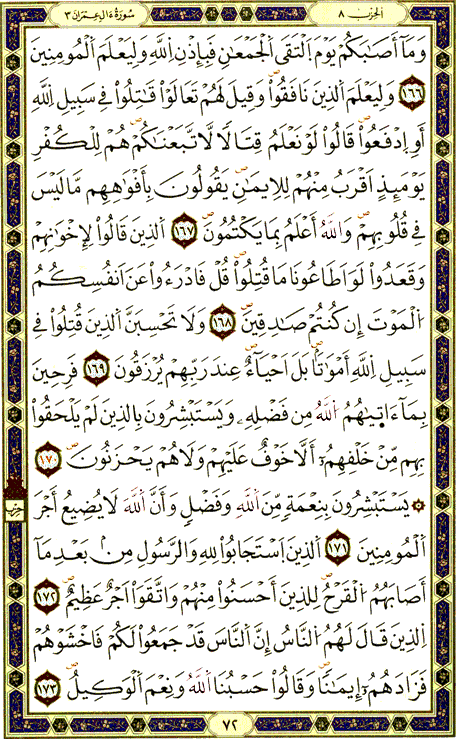 الحزب ٨ سُورَةُ ءَالِ عِمْرَانَ ٣
وَمَآ أَصَٰبَكُمْ يَوْمَ اَ۬لْتَقَى اَ۬لْجَمْعَٰنِ فَبِإِذْنِ اِ۬للَّهِ وَلِيَعْلَمَ اَ۬لْمُومِنِينَ
١٦٦ وَلِيَعْلَمَ اَ۬لذِينَ نَافَقُواْ وَقِيلَ لَهُمْ تَعَالَوْاْ قَٰتِلُواْ فِے سَبِيلِ اِ۬للَّهِ
أَوِ اِ۪دْفَعُواْ قَالُواْ لَوْ نَعْلَمُ قِتَالاٗ لَّاتَّبَعْنَٰكُمْ هُمْ لِلْكُفْرِ
يَوْمَئِذٍ اَقْرَبُ مِنْهُمْ لِلِايمَٰنِ يَقُولُونَ بِأَفْوَٰهِهِم مَّا لَيْسَ
فِے قُلُوبِهِمْ وَاللَّهُ أَعْلَمُ بِمَا يَكْتُمُونَ ١٦٧ اَ۬لذِينَ قَالُواْ لِإِخْوَٰنِهِمْ
وَقَعَدُواْ لَوَ اَطَاعُونَا مَا قُتِلُواْ قُلْ فَادْرَءُواْ عَنَ اَنفُسِكُمُ
اُ۬لْمَوْتَ إِن كُنتُمْ صَٰدِقِينَ ١٦٨ وَلَا تَحْسِبَنَّ اَ۬لذِينَ قُتِلُواْ فِے
سَبِيلِ اِ۬للَّهِ أَمْوَٰتاَۢ بَلَ اَحْيَآءٌ عِندَ رَبِّهِمْ يُرْزَقُونَ ١٦٩ فَرِحِينَ
بِمَآ ءَات۪يٰهُمُ اُ۬للَّهُ مِن فَضْلِهِۦ وَيَسْتَبْشِرُونَ بِالذِينَ لَمْ يَلْحَقُواْ
بِهِم مِّنْ خَلْفِهِمُۥٓ أَلَّا خَوْفٌ عَلَيْهِمْ وَلَا هُمْ يَحْزَنُونَ ١٧٠
۞ يَسْتَبْشِرُونَ بِنِعْمَةٖ مِّنَ اَ۬للَّهِ وَفَضْلٖ وَأَنَّ اَ۬للَّهَ لَا يُضِيعُ أَجْرَ
اَ۬لْمُومِنِينَ ١٧١ اَ۬لذِينَ اَ۪سْتَجَابُواْ لِلهِ وَالرَّسُولِ مِنۢ بَعْدِ مَآ
أَصَابَهُمُ اُ۬لْقَرْحُ لِلذِينَ أَحْسَنُواْ مِنْهُمْ وَاتَّقَوَاْ اَجْرٌ عَظِيمٌ ١٧٢
اِ۬لذِينَ قَالَ لَهُمُ اُ۬لنَّاسُ إِنَّ اَ۬لنَّاسَ قَدْ جَمَعُواْ لَكُمْ فَاخْشَوْهُمْ
فَزَادَهُمُۥٓ إِيمَٰناٗ وَقَالُواْ حَسْبُنَا اَ۬للَّهُ وَنِعْمَ اَ۬لْوَكِيلُ ١٧٣
حزب
٧٢